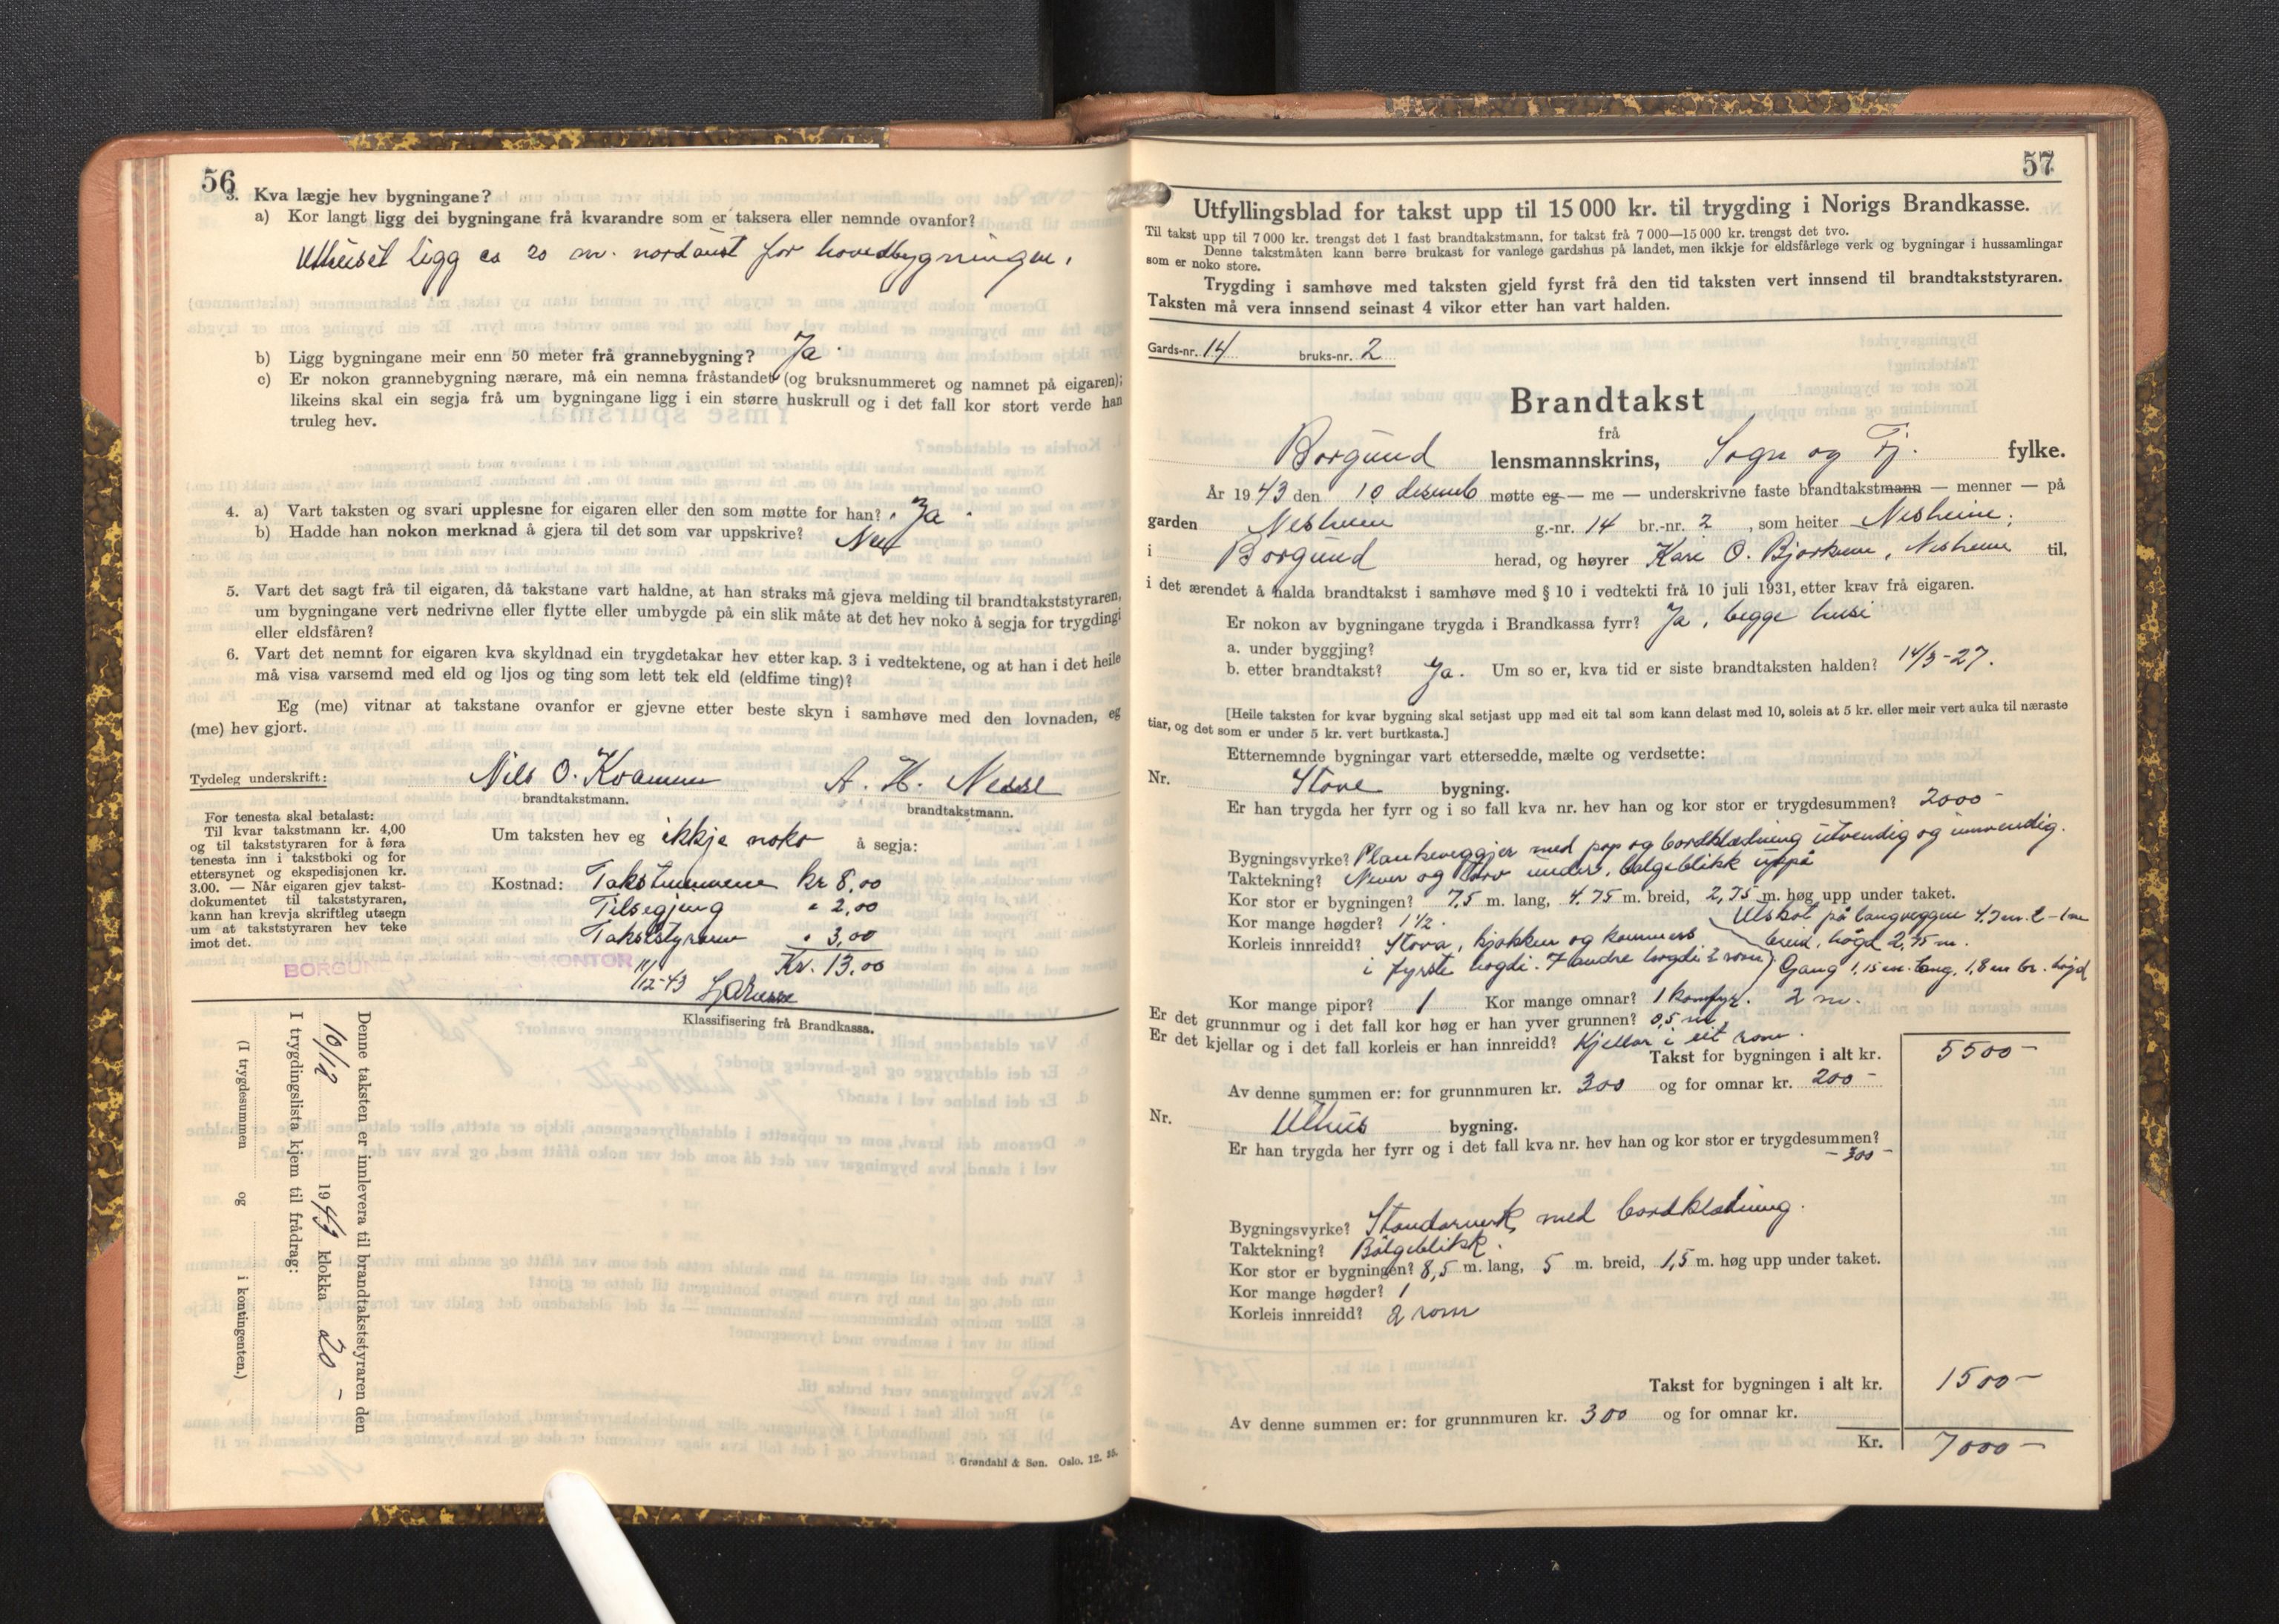 56
3. Kva lægje hev bygningane?
a) Kor langt ligg dei bygningane frå kvarandre som er taksera eller nemnde ovanfor?
Uthuset ligg ca 20 m. nordaust for hovedbygningen.
b) Ligg bygningane meir enn 50 meter frå grannebygning? Ja.
c) Er nokon grannebygning nærare, må ein nemna fråstandet (og bruksnummeret og namnet på eigaren);
likeins skal ein segja frå um bygningane ligg i ein større huskrull og i det fall kor stort verde han
truleg hev.
4. a) Vart taksten og svari upplesne for eigaren eller den som møtte for han? Ja.
b) Hadde han nokon merknad å gjera til det som var uppskrive? Nei
5. Vart det sagt frå til eigaren, då takstane vart haldne, at han straks må gjeva melding til brandtakststyraren,
um bygningane vert nedrivne eller flytte eller umbygde på ein slik måte at det hev noko å segja for trygdingi
eller eldsfåren?
6. Vart det nemnt for eigaren kva skyldnad ein trygdetakar hev etter kap. 3 i vedtektene, og at han i det heile
må visa varsemd med eld og ljos og ting som lett tek eld (eldfime ting)?
Eg (me) vitnar at takstane ovanfor er gjevne etter beste skyn i samhøve med den lovnaden, eg
(me) hev gjort.
Tydeleg underskrift: Nils O. Kvamme A. H. Nesse
brandtakstmann. brandtakstmann.
For tenesta skal betalast:
Til kvar takstmann kr. 4,00
og til takststyraren for å føra
tenesta inn i takstboki og for
ettersynet og ekspedisjonen kr.
3.00. — Når eigaren gjev takst-
dokumentet til takststyraren,
kann han krevja skriftleg utsegn
um at takststyraren hev teke
imot det.
Um taksten hev eg ikkje noko å segja:
Kostnad: Takstmennene kr 8,00
Tilsegjing " 2,00
Takststyraren " 3,00
Kr. 13.00
11/12-43
Klassifisering frå Brandkassa.
Denne taksten er innlevera til brandtakststyraren den
10/12 1943 klokka 20 -
I trygdingslista kjem til frådrag:
(I trygdesummen og i kontingenten.)
Grøndahl & Søn. Oslo. 12. 35.
57
Utfyllingsblad for takst upp til 15 000 kr. til trygding i Norigs Brandkasse.
Til takst upp til 7 000 kr. trengst det 1 fast brandtakstmann, for takst frå 7 000—15 000 kr. trengst det tvo.
Denne takstmåten kann berre brukast for vanlege gardshus på landet, men ikkje for eldsfårlege verk og bygningar i hussamlingar
som er noko store.
Trygding i samhøve med taksten gjeld fyrst frå den tid taksten vert innsend til brandtakststyraren.
Taksten må vera innsend seinast 4 vikor etter han vart halden.
Gards-nr. 14 bruks-nr. 2
Brandtakst
frå
Borgund lensmannskrins, Sogn og Fj. fylke.
År 1943 den 10 desemb møtte eg — me — underskrivne faste brandtakstmann — menner — på
garden Nesheim g.-nr. 14 br.-nr. 2, som heiter Nesheim;
i Borgund herad, og høyrer Kari O. Bjørkum, Nesheim til,
i det ærendet å halda brandtakst i samhøve med § 10 i vedtekti frå 10 juli 1931, etter krav frå eigaren.
Er nokon av bygningane trygda i Brandkassa fyrr? Ja, begge husi
a. under byggjing?
b. etter brandtakst? Ja. Um so er, kva tid er siste brandtaksten halden? 14/3-27.
[Heile taksten for kvar bygning skal setjast upp med eit tal som kann delast med 10, soleis at 5 kr. eller meir vert auka til næraste
tiar, og det som er under 5 kr. vert burtkasta.]
Etternemnde bygningar vart ettersedde, mælte og verdsette:
Nr. Stove bygning.
Er han trygda her fyrr og i so fall kva nr. hev han og kor stor er trygdesummen? 2000-
Bygningsvyrke? Plankeveggjer med pap og bordklædning utvendig og innvendig.
Taktekning? Never og torv under, bølgeblikk uppå
Kor stor er bygningen? 7,5 m. lang, 4.75 m. breid, 2,75 m. høg upp under taket.
Kor mange høgder? 1½. Utskot på langveggen 4.7 m. l - 1 m
Korleis innreidd? Stova, kjøkken og kammers breid, høgd 2,75 m.
i fyrste høgdi. I andre høgdi 2 rom Gang 1,15 m. lang, 1,8 m br. høgd
Kor mange pipor? 1 Kor mange omnar? 1 komfyr. 2 m.
Er det grunnmur og i det fall kor høg er han yver grunnen? 0,5 m
Er det kjellar og i det fall korleis er han innreidd? Kjellar i eit rom.
Takst for bygningen i alt kr. 5500-
Av denne summen er: for grunnmuren kr. 300 og for omnar kr. 200-
Nr. Uthus bygning.
Er han trygda her fyrr og i det fall kva nr. hev han og kor stor er trygdesummen?
- 300 -
Bygningsvyrke? Standarverk med bordklædning.
Taktekning? Bølgeblikk.
Kor stor er bygningen? 8,5 m. lang, 5 m. breid, 1,5 m. høg upp under taket.
Kor mange høgder? 1
Korleis innreidd? 2 rom
Takst for bygningen i alt kr. 1500-
Av denne summen er: for grunnmuren kr. 300 og for omnar kr.
Kr. 7000-